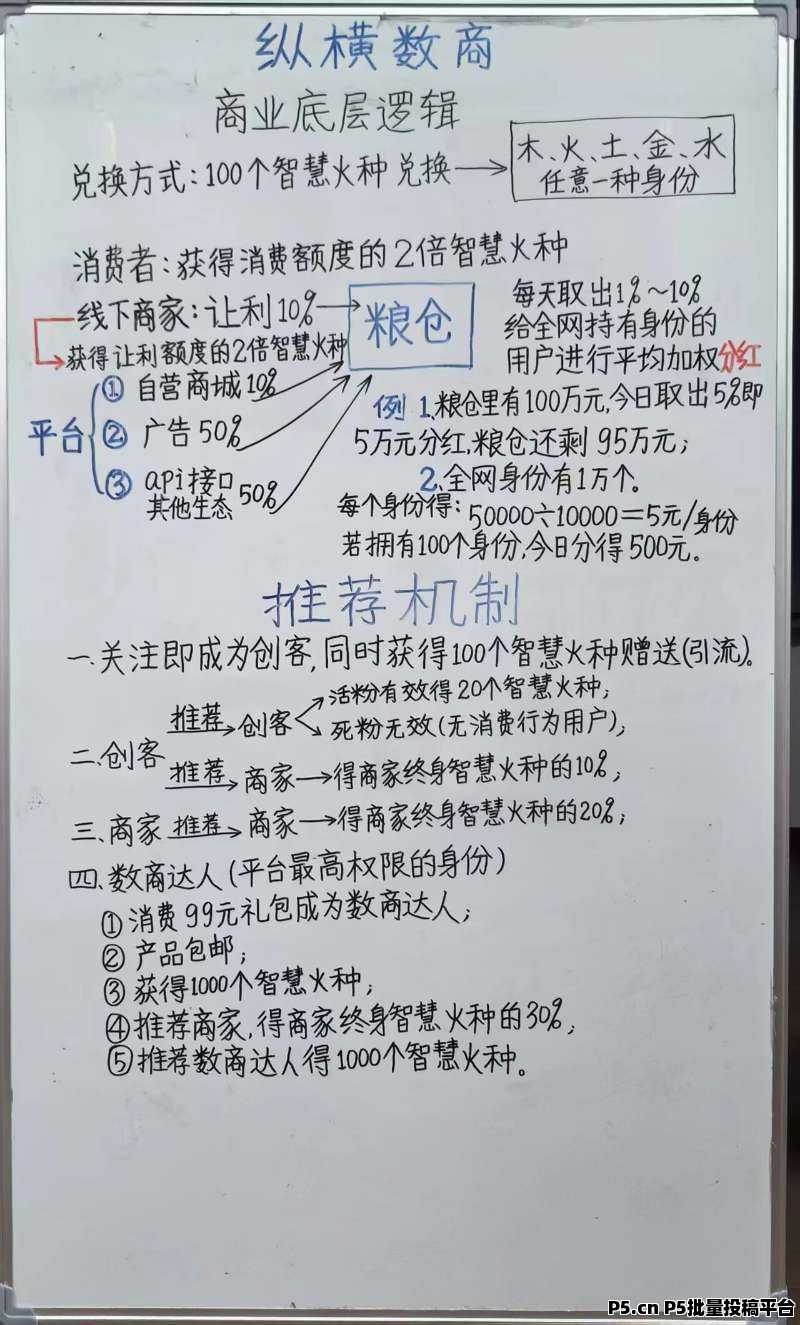 纵横数商
商业底层逻辑
兑换方式:100个智慧火种 兑换→
木、火、土、金、水
任意一种身份
消费者:获得消费额度的2倍智慧火种
线下商家:让利10%→
获得让利额度的2倍智慧火种
粮仓
平台
① 自营商城10%
② 广告50%
③ api接口
其他生态 50%
每天取出1%~10%
给全网持有身份的
用户进行平均加权分红
例 1.粮仓里有100万元,今日取出5%即
5万元分红,粮仓还剩95万元;
2.全网身份有1万个。
每个身份得:50000÷10000=5元/身份
若拥有100个身份,今日分得500元。
推荐机制
一.关注即成为创客,同时获得100个智慧火种赠送(引流)。
二.创客
推荐→创客
活粉有效得20个智慧火种;
死粉无效(无消费行为用户);
推荐→商家→得商家终身智慧火种的10%;
三.商家 推荐→商家→得商家终身智慧火种的20%;
四.数商达人(平台最高权限的身份)
①消费99元礼包成为数商达人;
②产品包邮;
③获得1000个智慧火种;
④推荐商家,得商家终身智慧火种的30%;
⑤推荐数商达人得1000个智慧火种。
P5.cn P5批量投稿平台